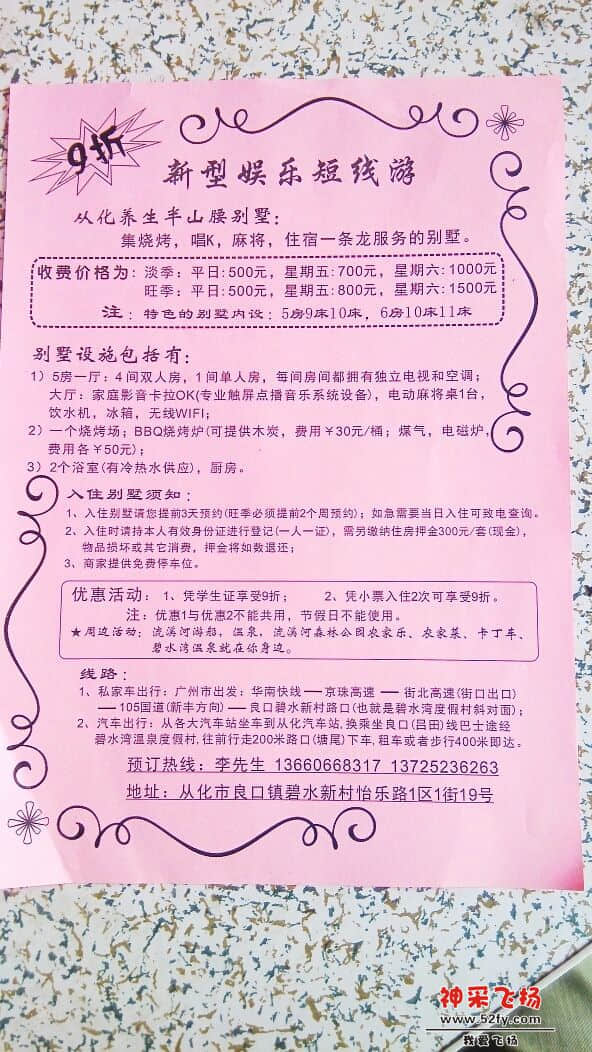 9折
新型娱乐短线游
从化养生半山腰别墅：
集烧烤，唱K，麻将，住宿一条龙服务的别墅。
收费价格为：淡季：平日:500元，星期五:700元，星期六:1000元
旺季：平日:500元，星期五:800元，星期六:1500元
注：特色的别墅内设：5房9床10床，6房10床11床
别墅设施包括有：
1）5房一厅：4间双人房，1间单人房，每间房间都拥有独立电视和空调；
大厅：家庭影音卡拉OK(专业触屏点播音乐系统设备)，电动麻将桌1台，
饮水机，冰箱，无线WIFI；
2）一个烧烤场；BBQ烧烤炉(可提供木炭，费用￥30元/桶；煤气，电磁炉，
费用各￥50元)；
3）2个浴室(有冷热水供应)，厨房。
入住别墅须知：
1、入住别墅请您提前3天预约(旺季必须提前2个周预约)；如急需要当日入住可致电查询。
2、入住时请持本人有效身份证进行登记(一人一证)，需另缴纳住房押金300元/套(现金)，
物品损坏或其它消费，押金将如数退还；
3、商家提供免费停车位。
优惠活动：1、凭学生证享受9折； 2、凭小票入住2次可享受9折。
注：优惠1与优惠2不能共用，节假日不能使用。
★周边活动：流溪河游船，温泉，流溪河森林公园农家乐、农家菜、卡丁车、
碧水湾温泉就在你身边。
线路：
1、私家车出行：广州市出发：华南快线——京珠高速——街北高速(街口出口)
——105国道(新丰方向)——良口碧水新村路口(也就是碧水湾度假村斜对面)；
2、汽车出行：从各大汽车站坐车到从化汽车站,换乘坐良口(吕田)线巴士途经
碧水湾温泉度假村,往前行走200米路口(塘尾)下车,租车或者步行400米即达。
预订热线：李先生 13660668317 13725236263
地址：从化市良口镇碧水新村怡乐路1区1街19号
神采飞扬
www.52fy.com
我爱飞扬